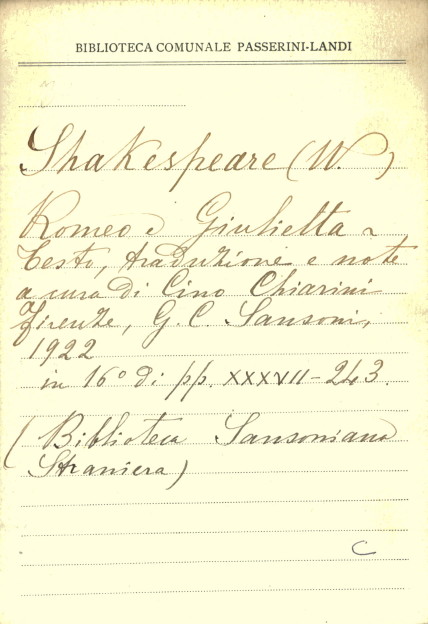 BIBLIOTECA COMUNALE PASSERINI-LANDI
Shakespeare (W.)
Romeo e Giulietta ~
Testo, traduzione e note
a cura di Cino Chiarini
Firenze, G. C. Sansoni,
1922
in 16° di pp. XXXVII-243.
(Biblioteca Sansoniana
Straniera)
C